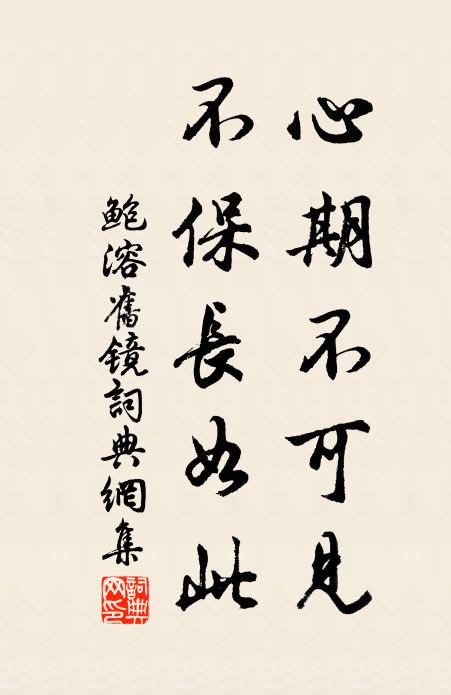 心期不可見
不保長如此
鮑溶舊鏡詞典網集
詞典網印